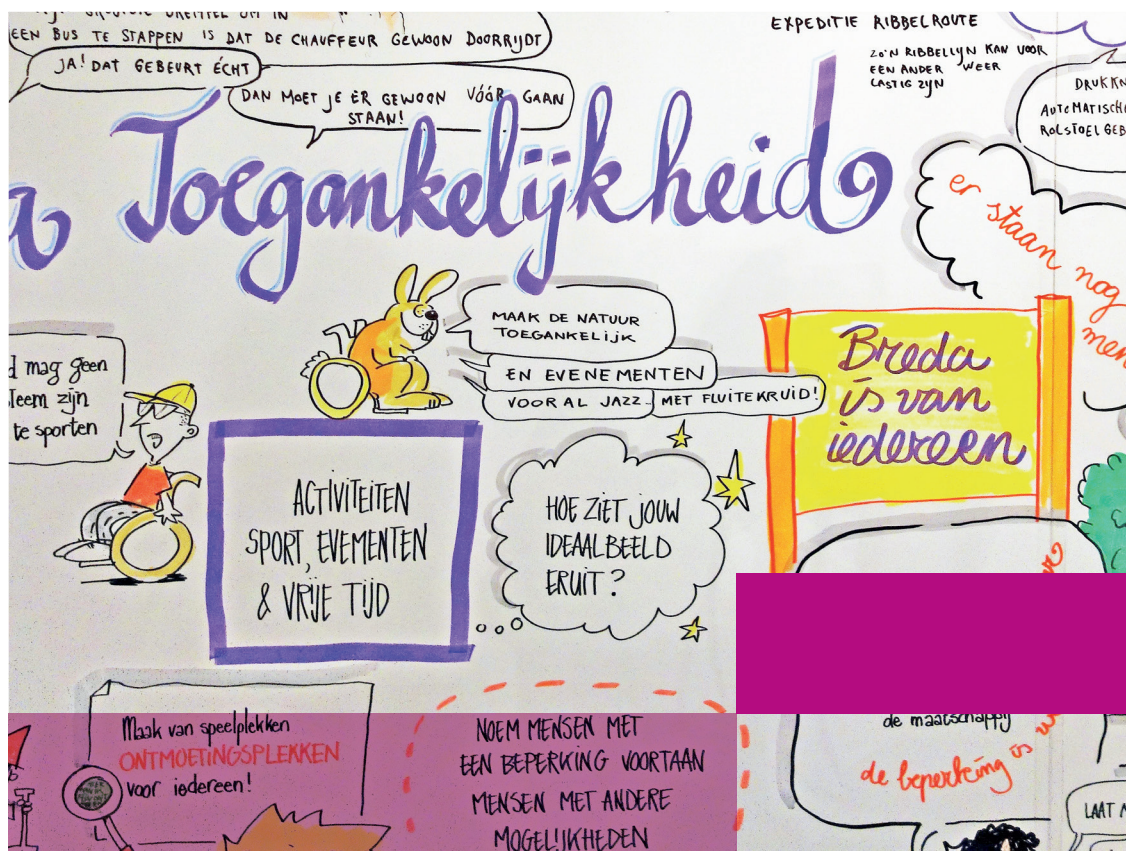 EEN BUS TE STAPPEN IS DAT DE CHAUFFEUR GEWOON DOORRIJDT
JA! DAT GEBEURT ÉCHT
DAN MOET JE ER GEWOON VÓÓR GAAN
STAAN!
EXPEDITIE RIBBELROUTE
ZO'N RIBBELLIJN KAN VOOR
EEN ANDER WEER
LASTIG ZIJN
DRUKKN
AUTOMATISCHE
ROLSTOEL GEB
Toegankelijkheid
er staan nog
men
MAAK DE NATUUR
TOEGANKELIJK
EN EVENEMENTEN
VOORAL JAZZ- MET FLUITEKRUID!
Breda
is van
iedereen
mag geen
leem zijn
te sporten
ACTIVITEITEN
SPORT, EVEMENTEN
& VRIJE TIJD
HOE ZIET JOUW
IDEAALBEELD
ERUIT?
Maak van speelplekken
ONTMOETINGSPLEKKEN
voor iedereen!
NOEM MENSEN MET
EEN BEPERKING VOORTAAN
MENSEN MET ANDERE
MOGELIJKHEDEN
de maatschappij
de beperking is
LAAT